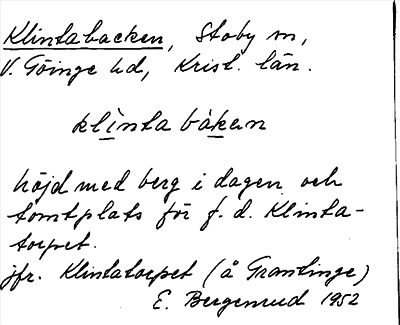 Klintabacken, Stoby sn,
V. Göinge hd, Krist. län.
klìnta bàken
höjd med berg i dagen och
tomtplats för f. d. Klinta-
torpet.
jfr. Klintatorpet (å Grantinge)
E. Bergenrud 1952